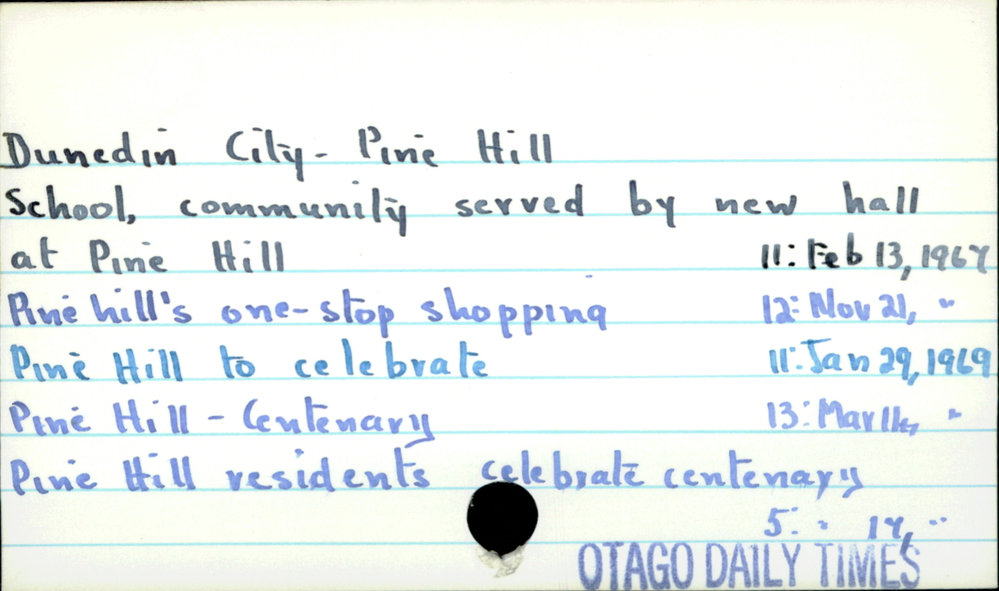 Dunedin City - Pine Hill
School, community served by new hall
at Pine Hill 11: Feb 13, 1967
Pine hill's one-stop shopping 12: Nov 21, "
Pine Hill to celebrate 11: Jan 29, 1969
Pine Hill - Centenary 13: Mar "
Pine Hill residents celebrate centenary
5: " 17, "
OTAGO DAILY TIMES